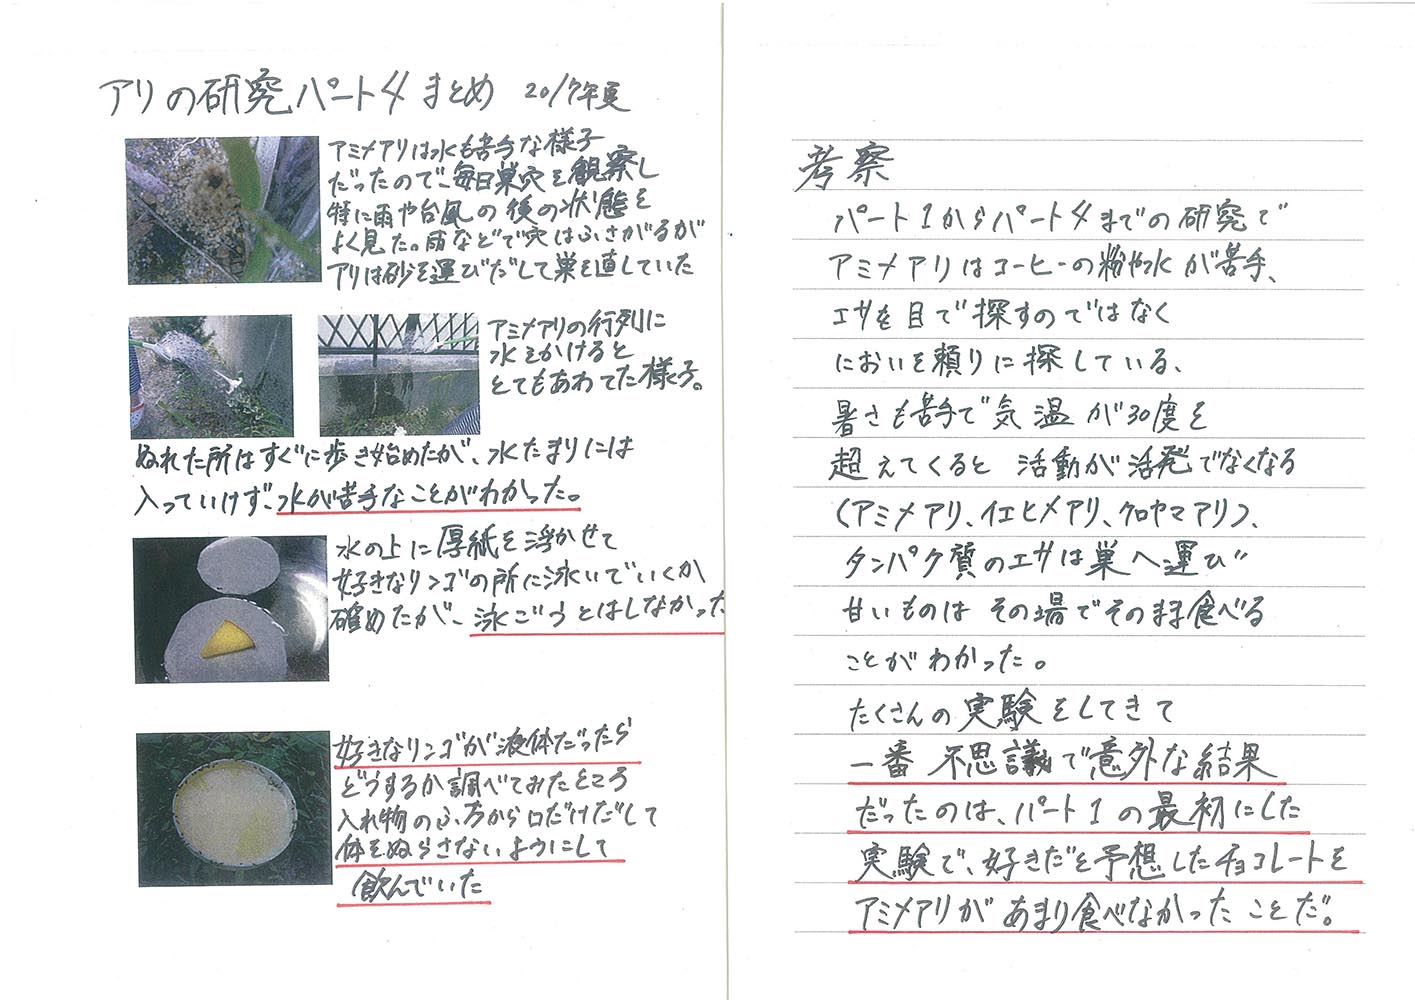 アリの研究パート4まとめ 2017年夏
アミメアリは水も苦手な様子
だったので、毎日巣穴を観察し
特に雨や台風の後の状態を
よく見た。雨などで穴はふさがるが
アリは砂を運びだして巣を直していた
アミメアリの行列に
水をかけると
とてもあわてた様子。
ぬれた所はすぐに歩き始めたが、水たまりには
入っていけず、水が苦手なことがわかった。
水の上に厚紙を浮かせて
好きなリンゴの所に泳いでいくか
確めたが、泳ごうとはしなかった
好きなリンゴが液体だったら
どうするか調べてみたところ
入れ物のふ方から口だけだして
体をぬらさないようにして
飲んでいた
考察
パート1からパート4までの研究で
アミメアリはコーヒーの粉や水が苦手、
エサを目で探すのではなく
においを頼りに探している、
暑さも苦手で気温が30度を
超えてくると活動が活発でなくなる
(アミメアリ、イエヒメアリ、クロヤマアリ)、
タンパク質のエサは巣へ運び
甘いものはその場でそのまま食べる
ことがわかった。
たくさんの実験をしてきて
一番不思議で意外な結果
だったのは、パート1の最初にした
実験で、好きだと予想したチョコレートを
アミメアリがあまり食べなかったことだ。